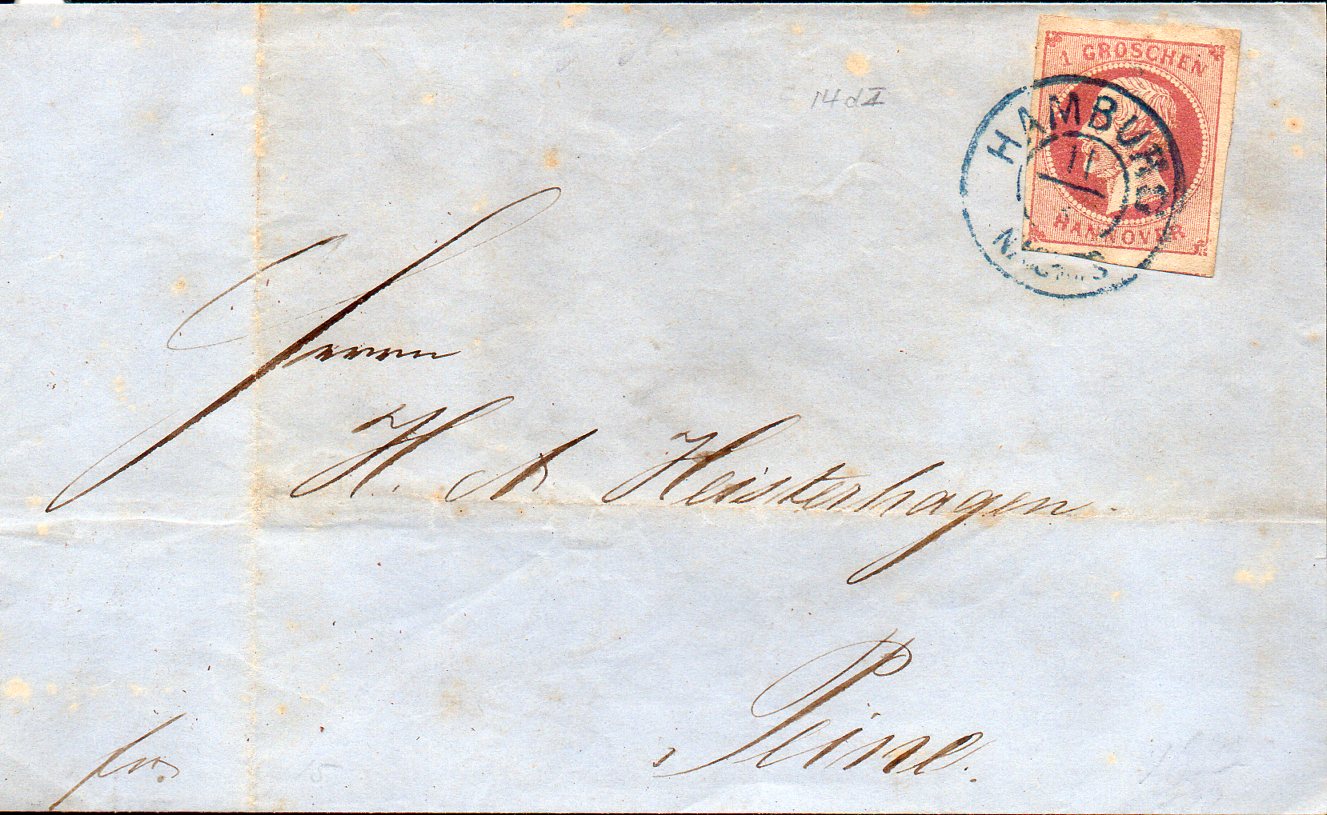 1 GROSCHEN
HANNOVER
HAMBURG
11
14 d I
Herrn
H. A Heisterhagen
Peine.
fr.